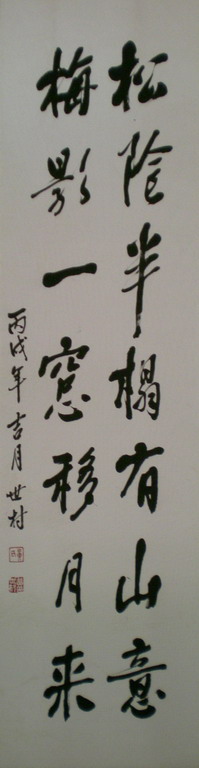 松陰半榻有山意
梅影一窓移月来
丙戌年吉月世村